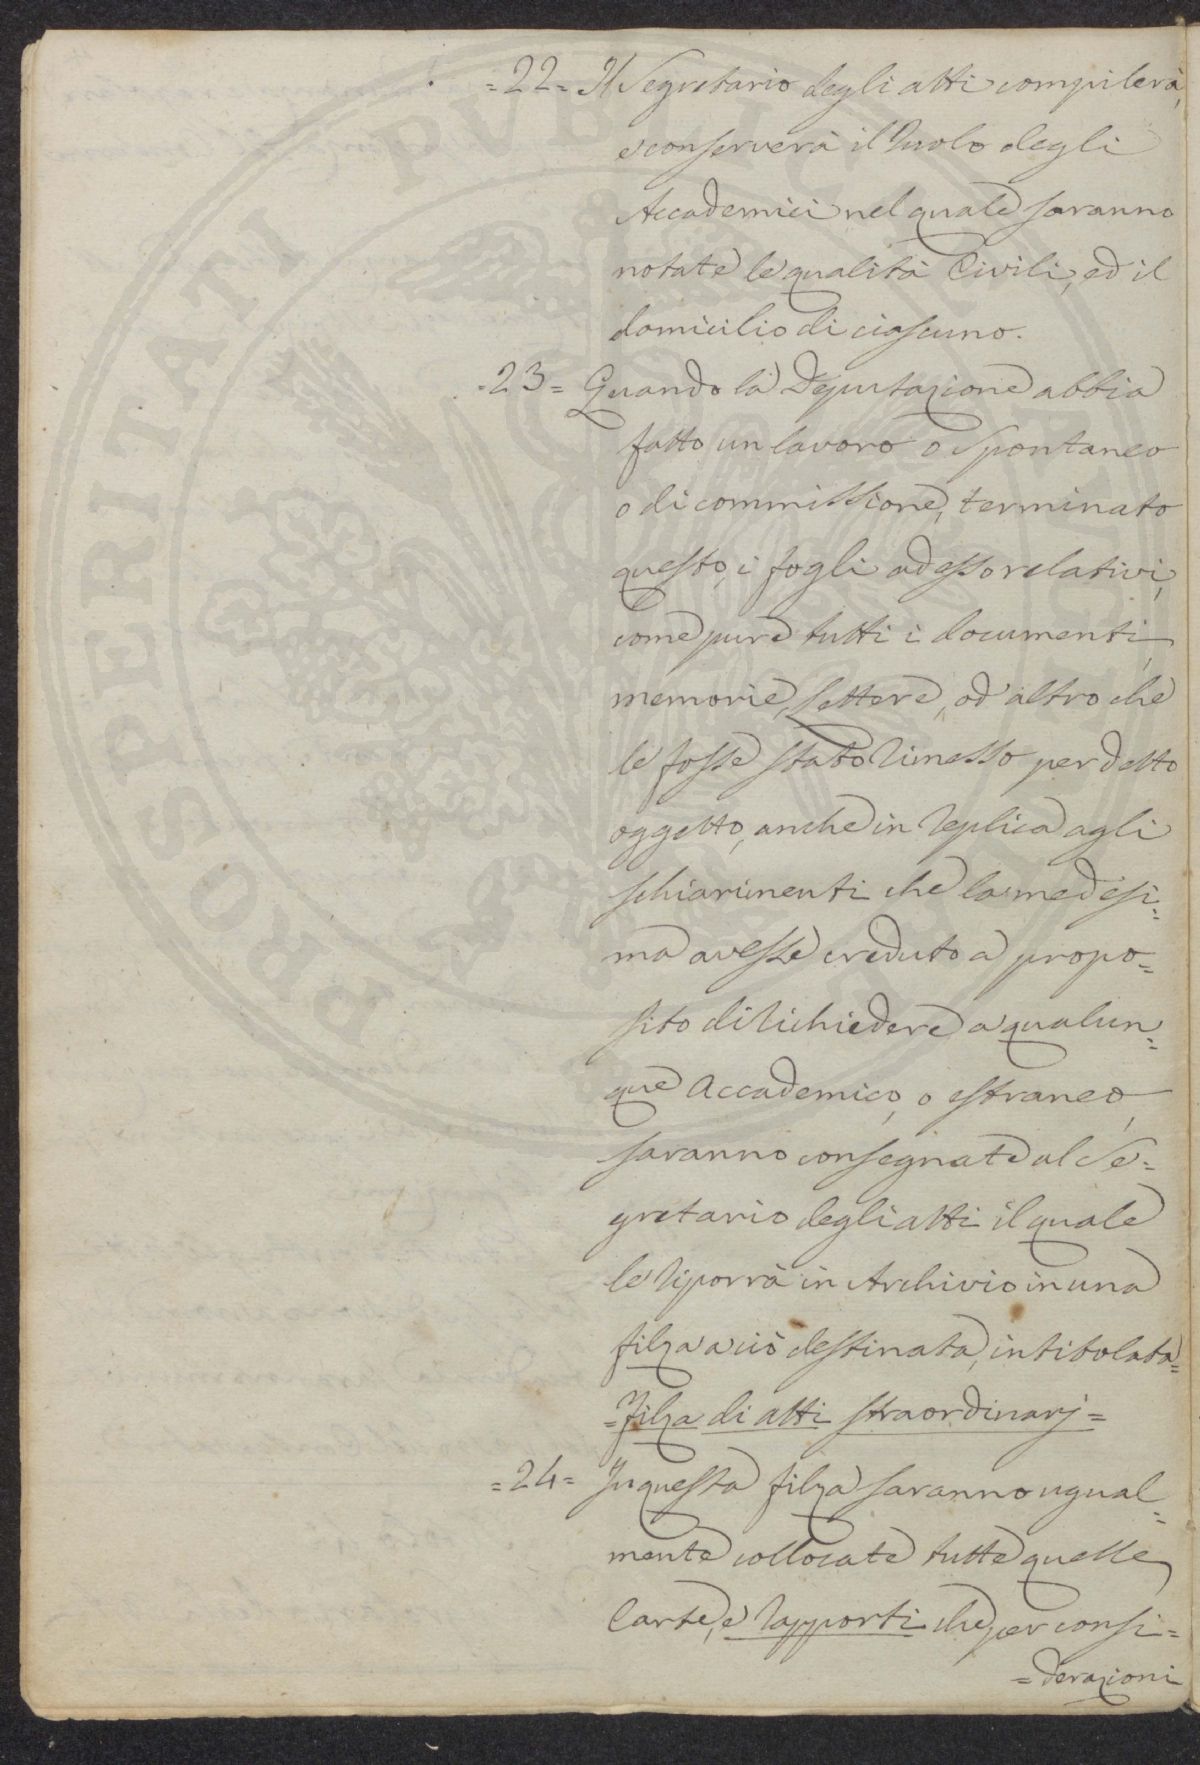 =22= Il Segretario degli atti compilerà,
e conserverà il Ruolo degli
Accademici nel quale saranno
notate le qualità Civili, ed il
domicilio di ciascuno.
=23= Quando la Deputazione abbia
fatto un lavoro o spontaneo
o di commissione, terminato
questo, i fogli ad esso relativi,
come pure tutti i documenti,
memorie, lettere, od altro che
le fosse stato rimesso per detto
oggetto, anche in replica agli
schiarimenti che la medesi=
ma avesse creduto a propo=
sito di richiedere a qualun=
que Accademico, o estraneo,
saranno consegnate al Se=
gretario degli atti il quale
le riporrà in Archivio in una
filza a ciò destinata, intitolata=
=Filza di atti straordinarj=
=24= In questa filza saranno ugual=
mente collocate tutte quelle
Carte, e rapporti che per consi=
=derazioni
PROSPERITATI PUBLICAE